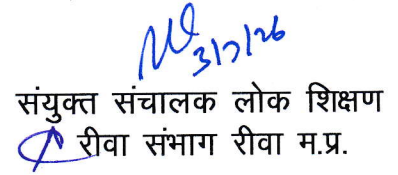 3/7/26
संयुक्त संचालक लोक शिक्षण
रीवा संभाग रीवा म.प्र.